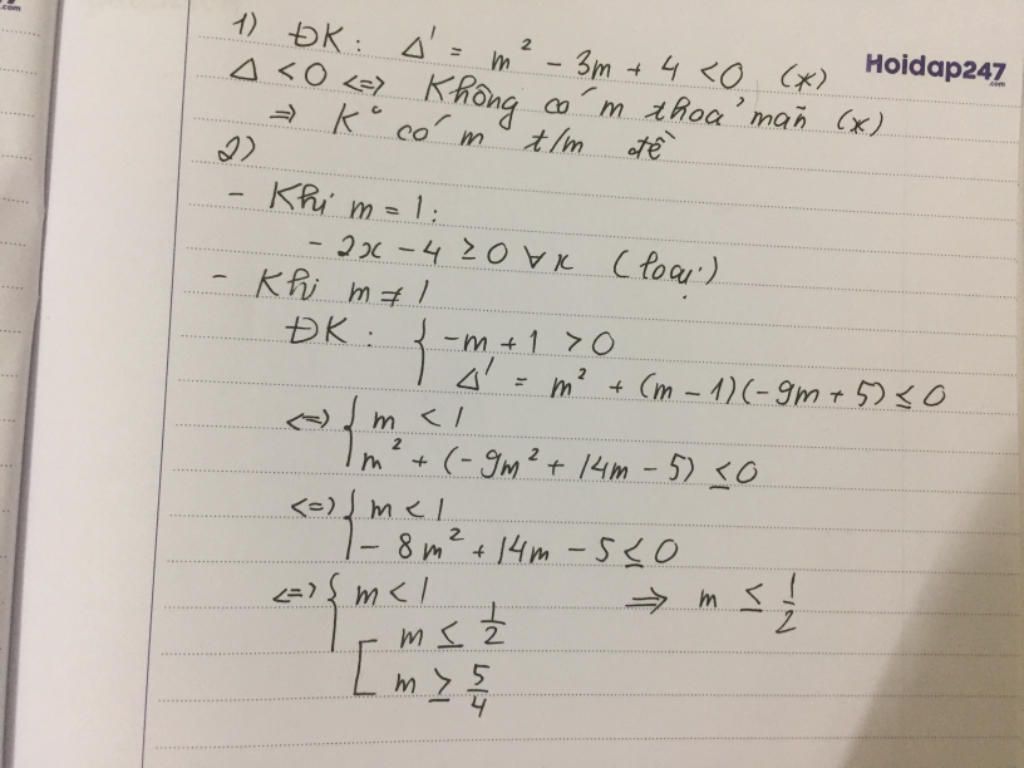 1) ĐK: Δ' = m² - 3m + 4 < 0 (*)
Hoidap247
.com
Δ < 0 <=> Không có m thoả mãn (*)
=> K° có m t/m đề
2)
- Khi m = 1:
- 2x - 4 ≥ 0 ∀x (loại)
- Khi m ≠ 1
ĐK: { -m + 1 > 0
Δ' = m² + (m - 1)(-9m + 5) ≤ 0
<=> { m < 1
m² + (-9m² + 14m - 5) ≤ 0
<=> { m < 1
- 8m² + 14m - 5 ≤ 0
<=> { m < 1 => m ≤ 1/2
[ m ≤ 1/2
m ≥ 5/4